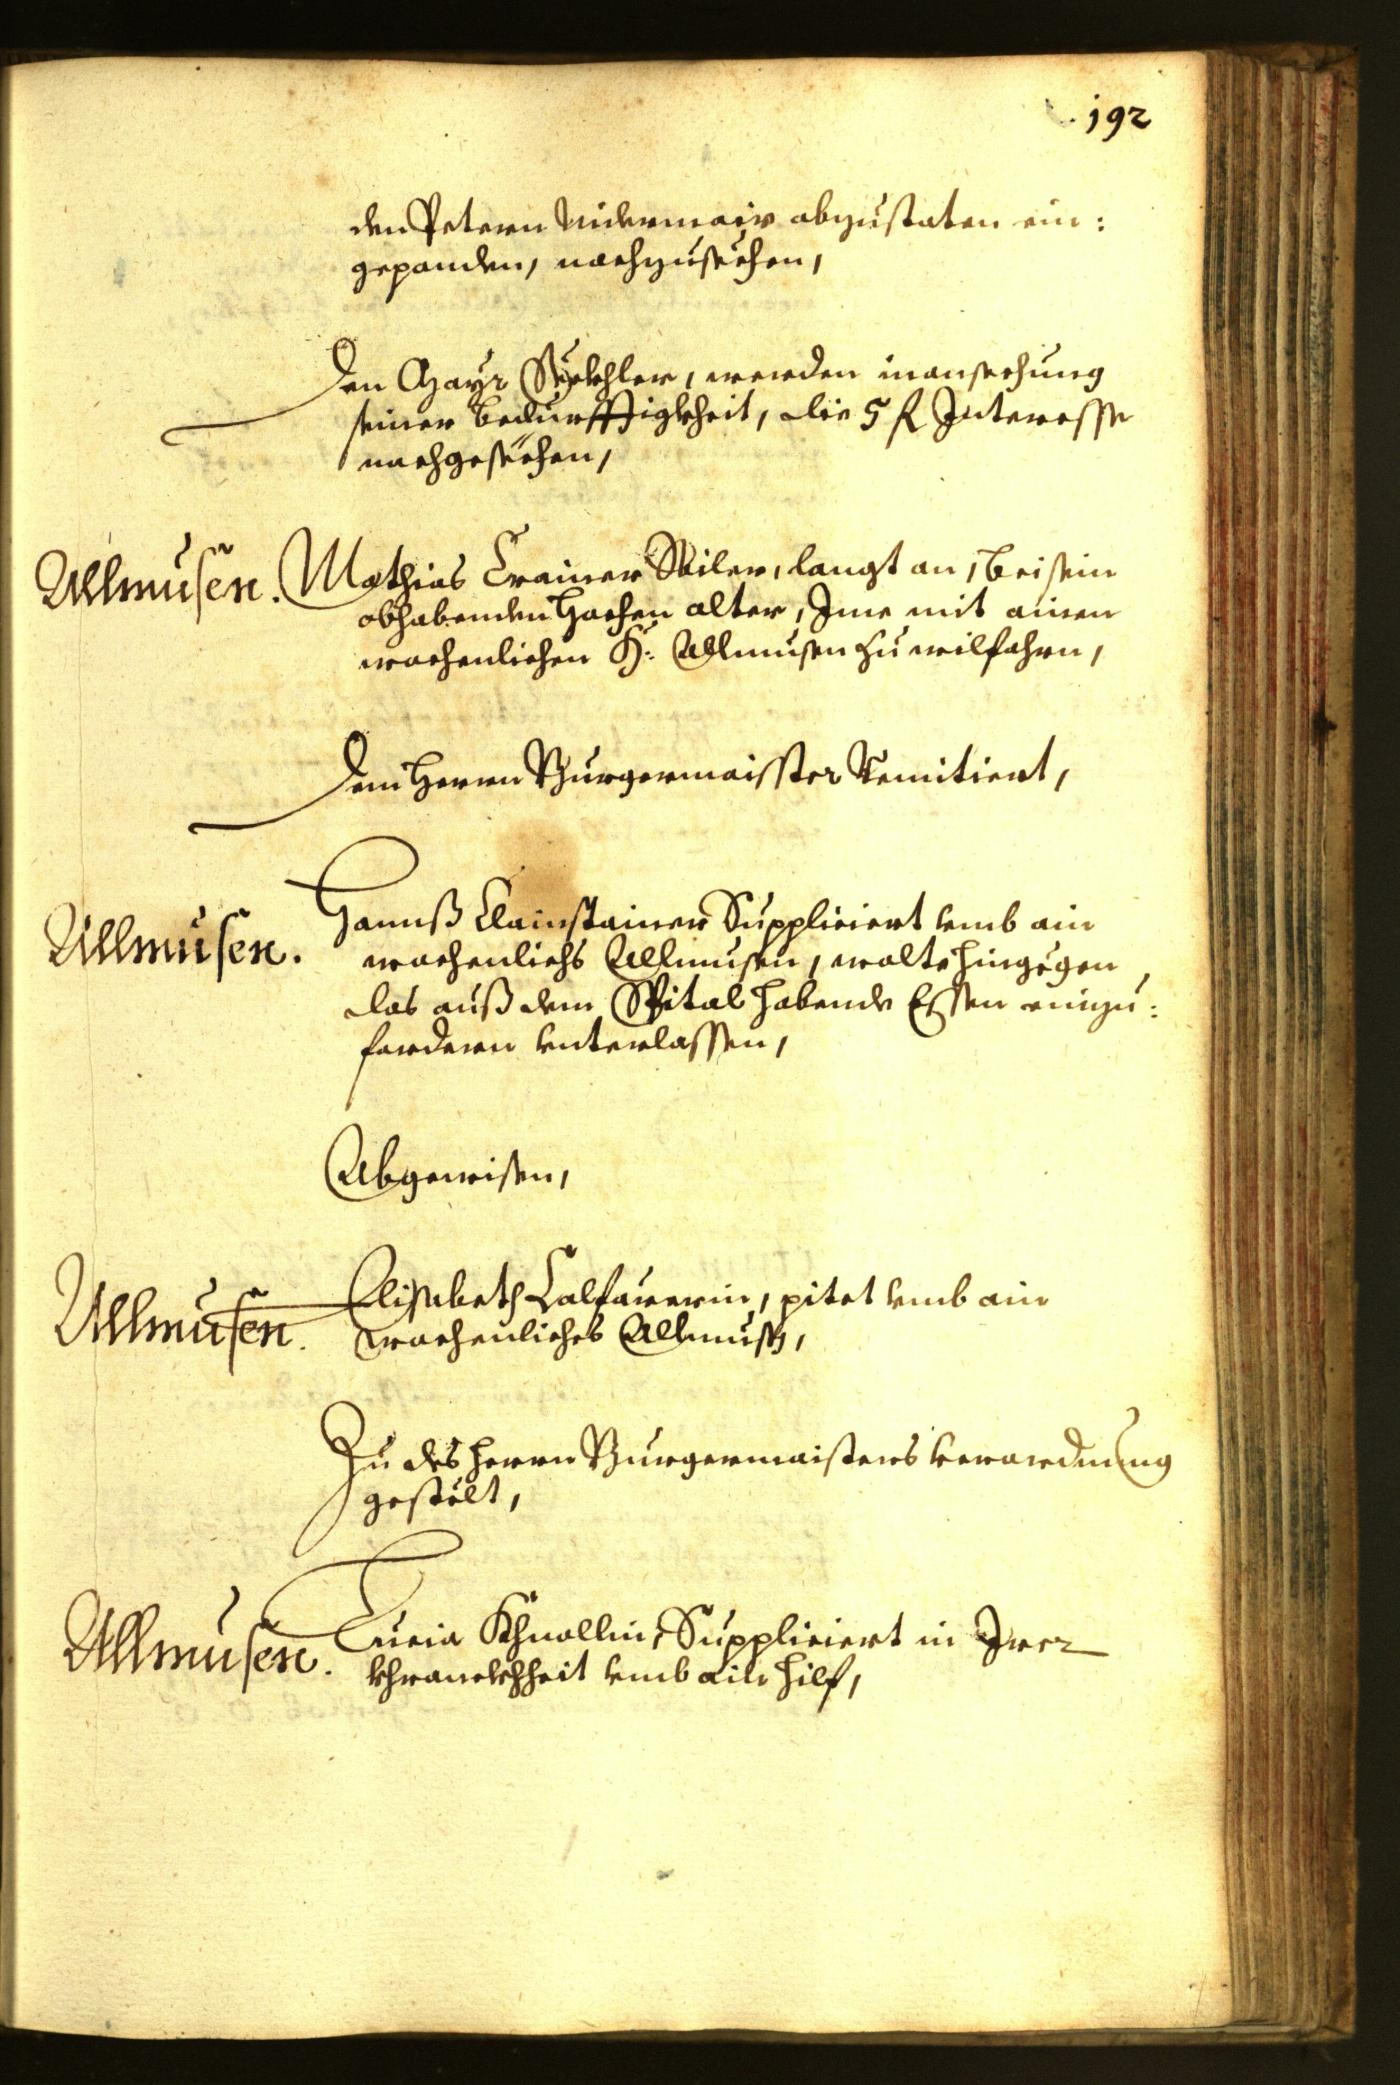 192
den Petern Nidermair abzustaten ein:
gepanden, nachzusechen,
Den Mayr Sücchler, werden in ansechung
seiner bedurfftigkheit, die 5 fl Interesse
nachgesechen,
Allmusen. Mathias Crainer Weiler, langt an, bei sein
obhabenden hochen alter, Ime mit ainen
wochenlichen H: Allmusen zu wilfahrn,
Dem Herrn Burgermaisster Remitiert,
Allmusen. Hannß Clainstainer Suppliciert vmb ain
wochenlichs Allmusen, wolte hingegen
das auß dem Spital habende Essen einzu:
fordern vnterlassen,
Abgewisen,
Allmusen. Elisabeth Calfauerin, pitet vmb ain
wochenliches Allmusen,
Zu des Herrn Burgermaisters verordnung
gestelt,
Allmusen. Lucia Khnollin, Suppliciert in Irer
khranckhheit vmb ain hilf,